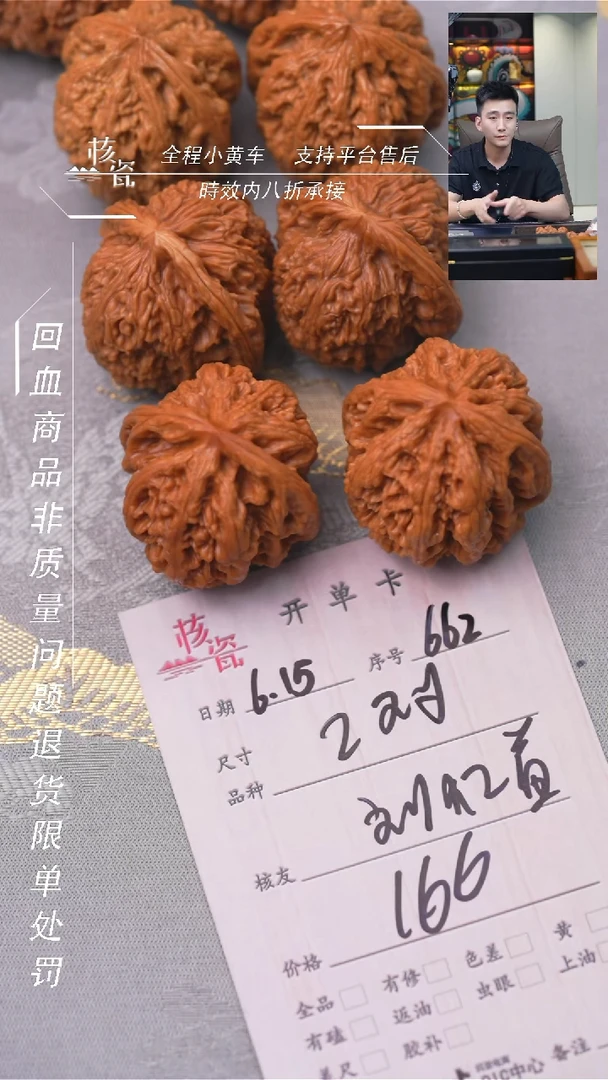 核瓷
全程小黄车 支持平台售后
時效内八折承接
回血商品非质量问题退货限单处罚
核瓷 开单卡
日期 6.15 序号 662
尺寸 2对
品种
核友
166
价格
全品 有修 色差 黄
有磕 返油 虫眼 上油
差尺 胶补 备注
IC中心